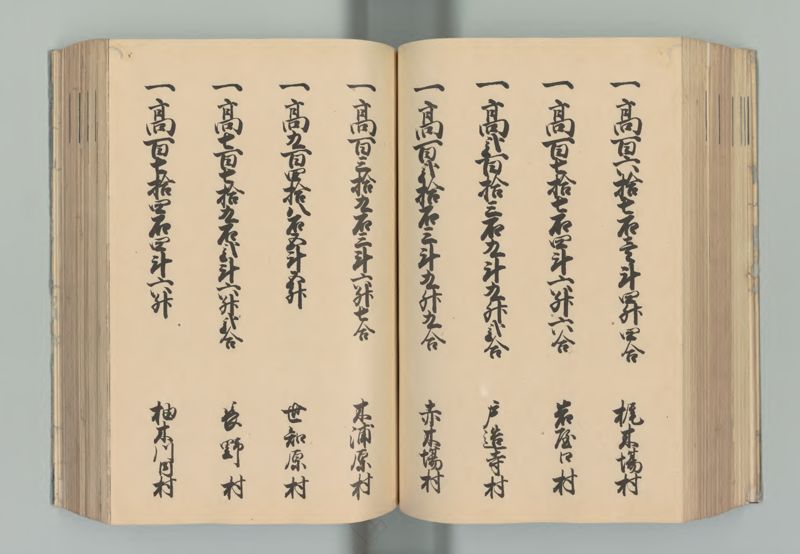 一高百六拾七石壱斗四升四合 梶木場村
一高百七拾七石四斗六升六合 岩屋口村
一高弐百拾三石九斗九升弐合 戸造寺村
一高百弐拾石三斗九升九合 赤木場村
一高百三拾九石三斗六升七合 木浦原村
一高九百四拾八石五斗五升 世知原村
一高七百七拾九石弐斗六升弐合 長野村
一高百七拾四石四斗六升 柚木川内村